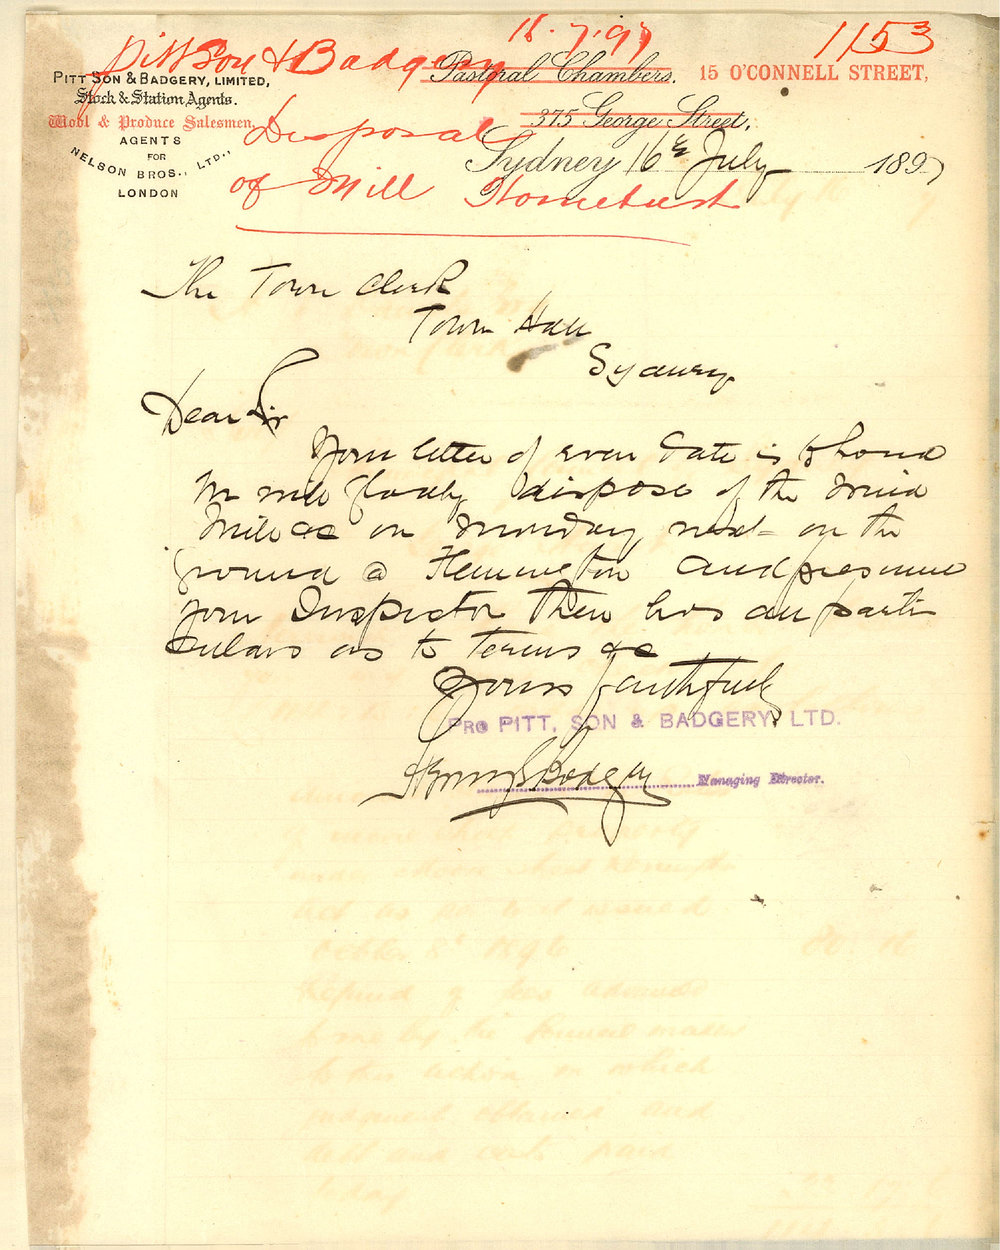 16.7.97
1153
Pitt Son & Badgery
PITT SON & BADGERY, LIMITED,
Stock & Station Agents.
Wool & Produce Salesmen.
AGENTS
FOR
NELSON BROS., LTD.,
LONDON
Pastoral Chambers.
15 O'CONNELL STREET,
375 George Street,
Sydney 16th July 1897
Disposal
of Mill Homebush
The Town Clerk
Town Hall
Sydney
Dear Sir
Your letter of even date is to hand
We will gladly dispose of the Wind
Mill &c on Monday next on the
ground @ Flemington and presume
your Inspector then has all parti
culars as to terms &c
Yours faithfully
PRO PITT, SON & BADGERY, LTD.
Badgery
Managing Director.